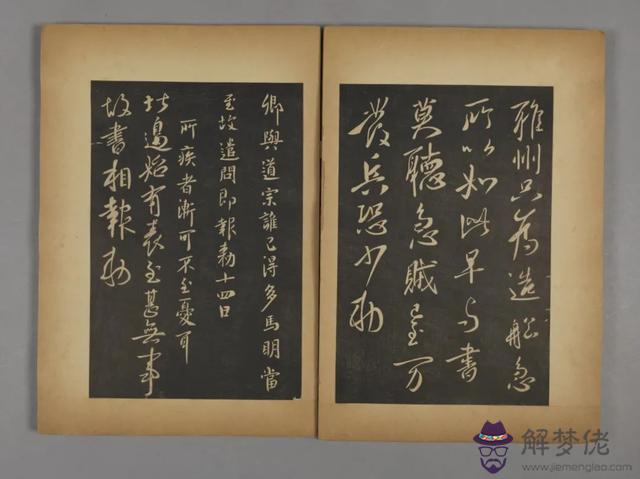 雅州只为造船急
所以如此早与书
莫聽急賊至万
發兵恐少勅
卿與道宗誰已得多馬明當
至故遣問即報勅十四日
所疾者漸可不至憂耳
比邊
有表至甚無事
故書相報勅
解梦佬
www.jiemenglao.com